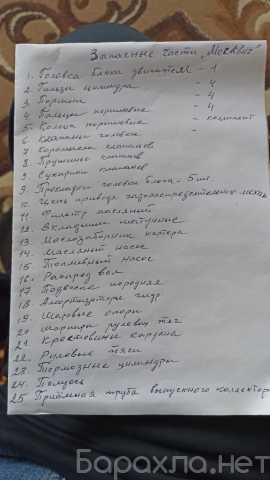 Запасные части „Москвич"
1. Головка блока двигателя - 1
2. Гильзы цилиндра - 4
3. Поршни - 4
4. Пальцы поршневые - 4
5. Кольца поршневые - комплект
6. Клапаны головки "
7. Коромысла клапанов
8. Пружины клапан
9. Сухарики клапанов
9. Прокладки головки блока - 5 шт.
10. Цепь привода газораспределительн механ
11. Фильтр масляный
12. Вкладыши шатунные
13. Маслозаборник картера
14. Масляный насос
15. Топливный насос
16. Распред вал
17. Подвеска передняя
18. Амортизаторы гидр
19. Шаровые опоры
20 шарниры рулевых тяг
21. Крестовины кардана
22. Рулевые тяги
23. Тормозные цилиндры
24. Полуось
25. Приёмная труба выпускного коллектор
Барахла.нет